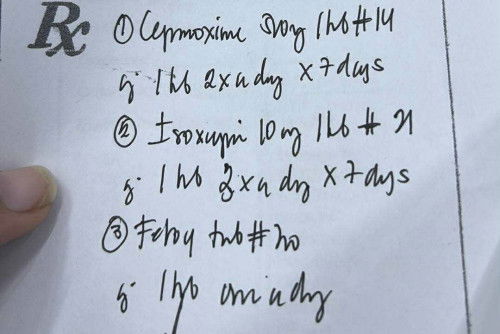 Rx ① Cepmoxime 500mg 1 tab #14
S: 1 tab 2x a day x 7 days
② Isoxupri 10mg 1 tab # 21
S: 1 tab 3x a day x 7 days
③ tab #20
S: 1 tab a day